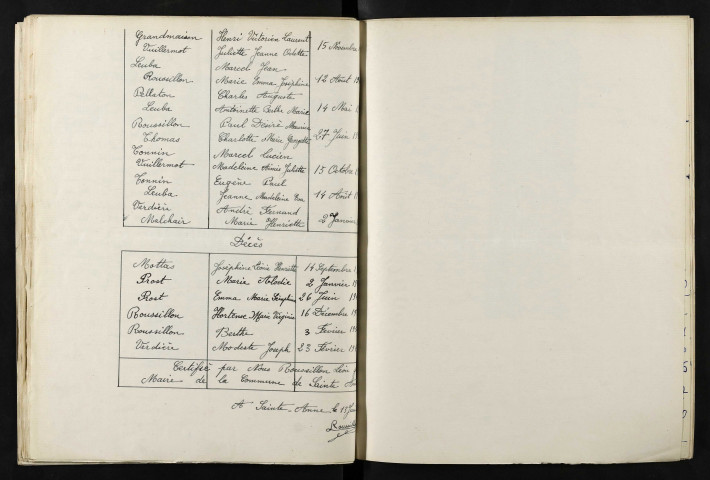 Grandmaison Henri Victorien Laurent
Vuillermot Juliette Jeanne Odette 15 Novembre
Leuba Marcel Jean
Roussillon Marie Emma Joséphine 12 Août 19
Pelleton Charles Auguste
Leuba Antoinette Berthe Marie 14 Mai 1
Roussillon Paul Désiré Maurice
Thomas Charlotte Marie 27 Juin 1
Tonnin Marcel Lucien
Vuillermot Madeleine Aimée Juliette 15 Octobre
Tonnin Eugène Paul
Leuba Jeanne Madeleine 14 Août 1
Verdière André Fernand
Malchair Marie Henriette 2 Janvier
Décès
Mottas Joséphine Léonie Henriette 14 Septembre 1
Prost Marie Alodie 2 Janvier 1
Prost Emma Marie Séraphine 26 Juin 19
Roussillon Hortense Marie Virginie 16 Décembre 19
Roussillon Berthe 3 Février 19
Verdière Modeste Joseph 23 Février 19
Certifié par Nous Roussillon Léon
Maire de la Commune de Sainte An
A Sainte-Anne le 15 Jan